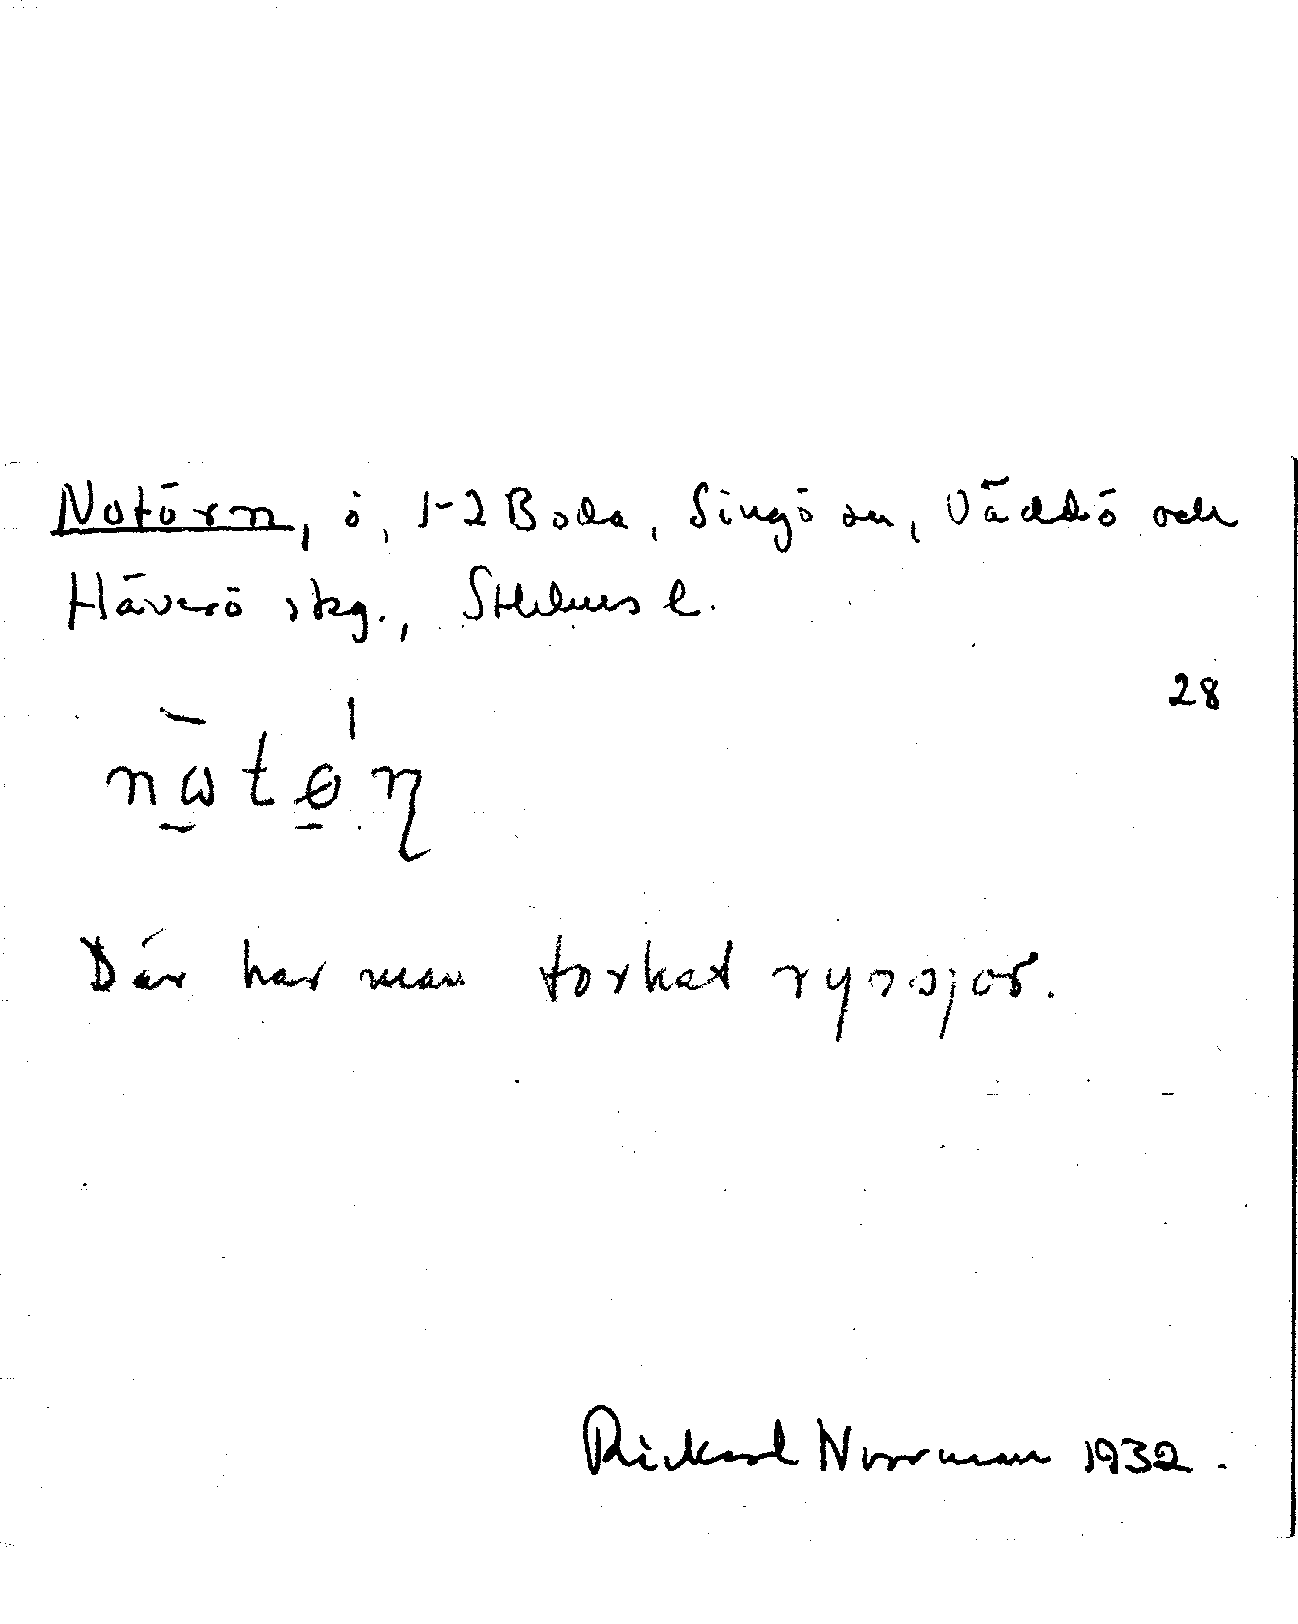 Notörn, ö, 1-2 Boda, Singö sn, Väddö och
Häverö skg., Sthlms l.
28
nɷtɵ́ꞃ
Där har man torkat ryssjor.
Rickard Norrman 1932.